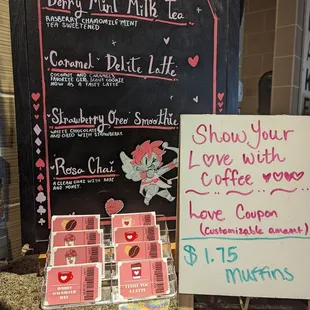 Berry Mint Milk Tea
RASBERRY CHAMOMILE MINT
TEA SWEETENED
Caramel Delite Latte
COCONUT AND CARAMEL
FAVORITE GIRL SCOUT COOKIE
NOW AS A TASTY LATTE
Strawberry Oreo Smoothie
WHITE CHOCOLATE
AND OREO WITH STRAWBERRY
Rosa Chai
A CLEAN CHAI WITH ROSE
AND HONEY
Show Your
Love with
Coffee
Love Coupon
(customizable amount)
$1.75
muffins